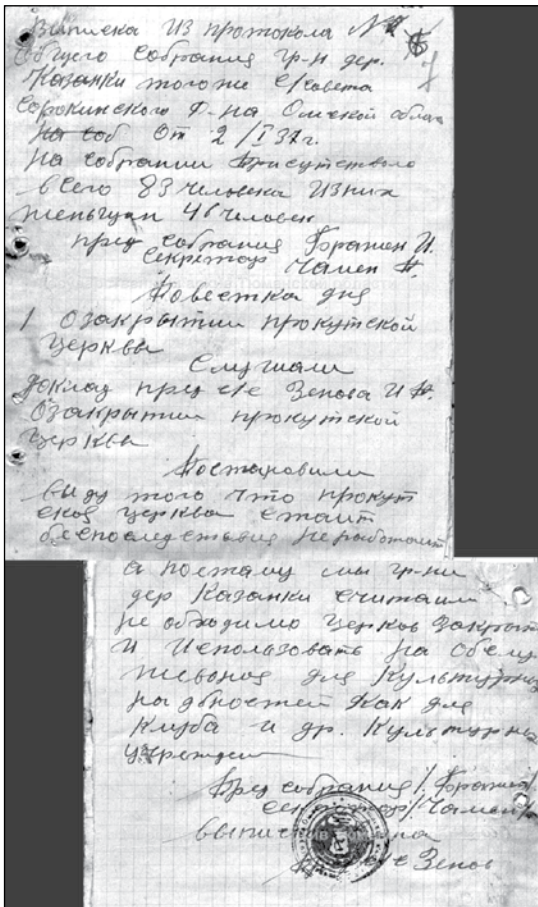 Выписка из протокола №
общего собрания гр-н дер.
Казанки тогоже с/совета
Сорокинского р-на Омской облас
на соб От 2/I 37г.
На собрании присутствовало
всего 83 человека Изних
женьщин 46 человек
пред собрания И.
секретарь Чамен
Повестка дня
1 Озакрытии прокутской
церквы
Слушали
доклад пред с/с Зенова И Н.
Озакрытии прокутской
церквы
Постановили
ввиду того что прокут
ская церква стаит
безпоследствия неработаит
а поетаму мы гр-ни
дер Казанки считаим
не обходимо церков закрыт
и Использовать на
для Культурных
как для
Клуба и др. Культурны
учрежден
Пред собрания /
секретар /Чамен/
выписка
с/с Зенов